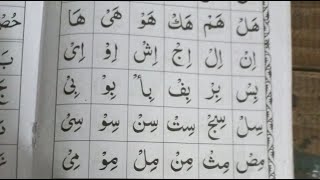 هَلْ هَمْ هَكْ هَوْ هَىْ هَا
اِنْ اِلْ اِجْ اِشْ اِوْ اِىْ
بِسْ بِرْ بِفْ بِأْ بِوْ بِىْ
سِلْ سِجْ سِتْ سِنْ سِوْ سِىْ
مِصْ مِثْ مِنْ مِلْ مِوْ مِىْ